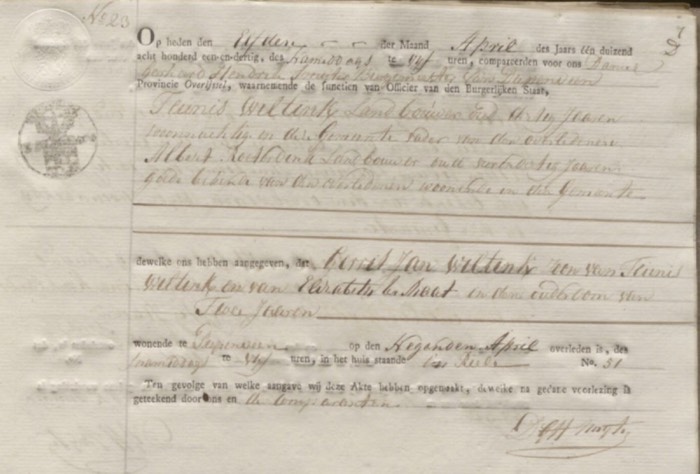 No 23
Op heden den Elfden der Maand April des Jaars één duizend
acht honderd een-en-dertig, des namiddags te vyf uren, compareerden voor ons
Burgemeester van
Provincie Overijssel, waarnemende de functien van Officier van den Burgerlijken Staat,
Teunis Weltink Landbouwer oud dertig Jaaren
woonachtig in deze Gemeente vader van den overledenen
Albert Landbouwer oud Jaaren
goede bekende van den overledenen woonende in deze Gemeente
dewelke ons hebben aangegeven, dat Gerrit Jan Weltink zoon van Teunis
Weltink en van Elizabeth in den ouderdom van
Twee Jaaren
wonende te op den Negenden April overleden is, des
namiddags te vyf uren, in het huis staande in No. 31
Ten gevolge van welke aangave wij deze Akte hebben opgemaakt, dewelke na gedane voorlezing is
geteekend door ons en de Comparanten